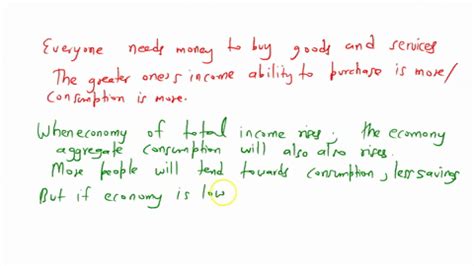 Everyone needs money to buy goods and services
The greater one's income ability to purchase is more/
consumption is more.
When economy of total income rises, the ecomony
aggregate consumption will also also rises.
More people will tend towards consumption, less savings
But if economy is low